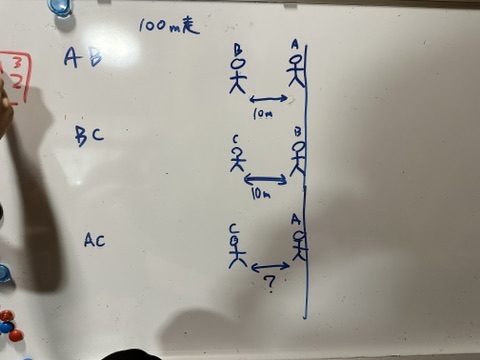 100m走
3
2
A B
B A
10m
B C
C B
10m
A C
C A
?